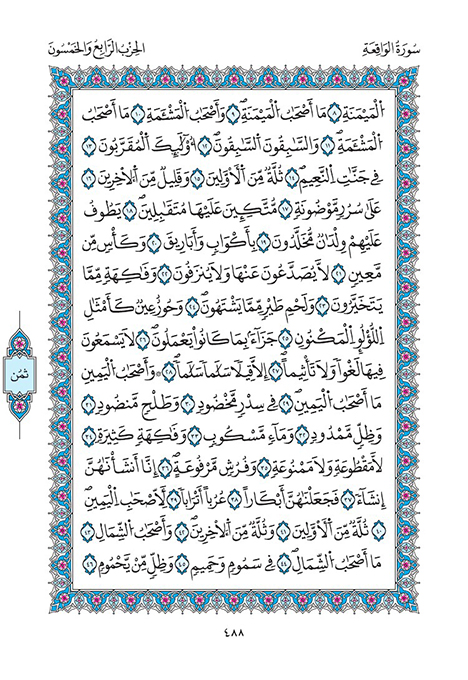 سُورَةُ الْوَاقِعَةِ
الحِزْبُ الرَّابِعُ وَالخَمْسُونَ
اَ۬لْمَيْمَنَةِ ٨ مَا أَصْحَٰبُ الْمَيْمَنَةِ ٩ وَأَصْحَٰبُ الْمَشْـَٔمَةِ ١٠ مَا أَصْحَٰبُ
الْمَشْـَٔمَةِ ١١ وَالسَّٰبِقُونَ السَّٰبِقُونَ ١٢ أُوْلَٰٓئِكَ الْمُقَرَّبُونَ ١٣
فِي جَنَّٰتِ النَّعِيمِ ١٤ ثُلَّةٌ مِّنَ الْأَوَّلِينَ ١٥ وَقَلِيلٌ مِّنَ الْأٓخِرِينَ ١٦
عَلَىٰ سُرُرٍ مَّوْضُونَةٍ ١٧ مُّتَّكِـِٔينَ عَلَيْهَا مُتَقَٰبِلِينَ ١٨ يَطُوفُ
عَلَيْهِمْ وِلْدَٰنٌ مُّخَلَّدُونَ ١٩ بِأَكْوَابٍ وَأَبَارِيقَ ٢٠ وَكَأْسٍ مِّن
مَّعِينٍ ٢١ لَّا يُصَدَّعُونَ عَنْهَا وَلَا يُنزَفُونَ ٢٢ وَفَٰكِهَةٍ مِّمَّا
يَتَخَيَّرُونَ ٢٣ وَلَحْمِ طَيْرٍ مِّمَّا يَشْتَهُونَ ٢٤ وَحُورٌ عِينٌ كَأَمْثَٰلِ
اللُّؤْلُؤِ الْمَكْنُونِ ٢٥ جَزَآءً بِمَا كَانُواْ يَعْمَلُونَ ٢٦ لَا يَسْمَعُونَ
فِيهَا لَغْواً وَلَا تَأْثِيماً ٢٧ إِلَّا قِيلاً سَلَٰماً سَلَٰماً ٢٨ وَأَصْحَٰبُ الْيَمِينِ
ثُمُن
مَا أَصْحَٰبُ الْيَمِينِ ٢٩ فِي سِدْرٍ مَّخْضُودٍ ٣٠ وَطَلْحٍ مَّنضُودٍ ٣١
وَظِلٍّ مَّمْدُودٍ ٣٢ وَمَآءٍ مَّسْكُوبٍ ٣٣ وَفَٰكِهَةٍ كَثِيرَةٍ ٣٤
لَّا مَقْطُوعَةٍ وَلَا مَمْنُوعَةٍ ٣٥ وَفُرُشٍ مَّرْفُوعَةٍ ٣٦ إِنَّا أَنشَأْنَٰهُنَّ
إِنشَآءً ٣٧ فَجَعَلْنَٰهُنَّ أَبْكَاراً ٣٨ عُرُباً أَتْرَاباً ٣٩ لِّأَصْحَٰبِ الْيَمِينِ
٤٠ ثُلَّةٌ مِّنَ الْأَوَّلِينَ ٤١ وَثُلَّةٌ مِّنَ الْأٓخِرِينَ ٤٢ وَأَصْحَٰبُ الشِّمَالِ ٤٣
مَا أَصْحَٰبُ الشِّمَالِ ٤٤ فِي سَمُومٍ وَحَمِيمٍ ٤٥ وَظِلٍّ مِّنْ يَّحْمُومٍ ٤٦
٤٨٨